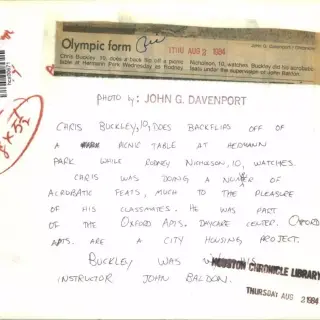 Olympic form
17HU AUG 2 1994
John G. Davenport / Chronicle
Chris Buckley, 10, does a back flip off a picnic table at Hermann Park Wednesday as Rodney
Nicholson, 10, watches. Buckley did his acrobatic feats under the supervision of John Baldon.
PHOTO by: JOHN G. DAVENPORT
8 x 5½
CHRIS BUCKLEY, 10, DOES BACKFLIPS OFF OF
A PICNIC TABLE AT HERMANN
PARK WHILE RODNEY NICHOLSON, 10, WATCHES.
CHRIS WAS DOING A NUMBER OF
ACROBATIC FEATS, MUCH TO THE PLEASURE
OF HIS CLASSMATES. HE WAS PART
OF THE OXFORD APTS. DAYCARE CENTER. OXFORD
APTS. ARE A CITY HOUSING PROJECT.
BUCKLEY WAS W/ HIS
INSTRUCTOR JOHN BALDON.
HOUSTON CHRONICLE LIBRARY
THURSDAY AUG 2 1984